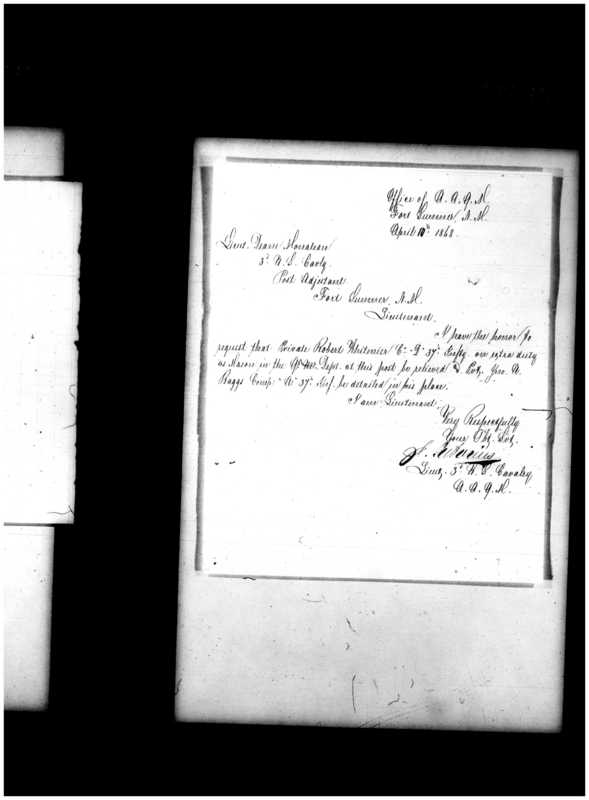 Office of A. A. Q. M.
Fort Sumner, N. M.
April 10th 1868.
Lieut. Deane Monahan
3d U. S. Cavly.
Post Adjutant
Fort Sumner, N. M.
Lieutenant.
I have the honor to
request that Private Robert Co. "D" 37th Infty. on extra duty
as Mason in the Qr. Mr. Dept. at this post be relieved & Pvt. Geo. A.
Baggs Comp. 37th Inf. be detailed in his place.
I am Lieutenant.
Very Respectfully
Your Obt. Svt.
Lieut. 3d U. S. Cavalry
A. A. Q. M.